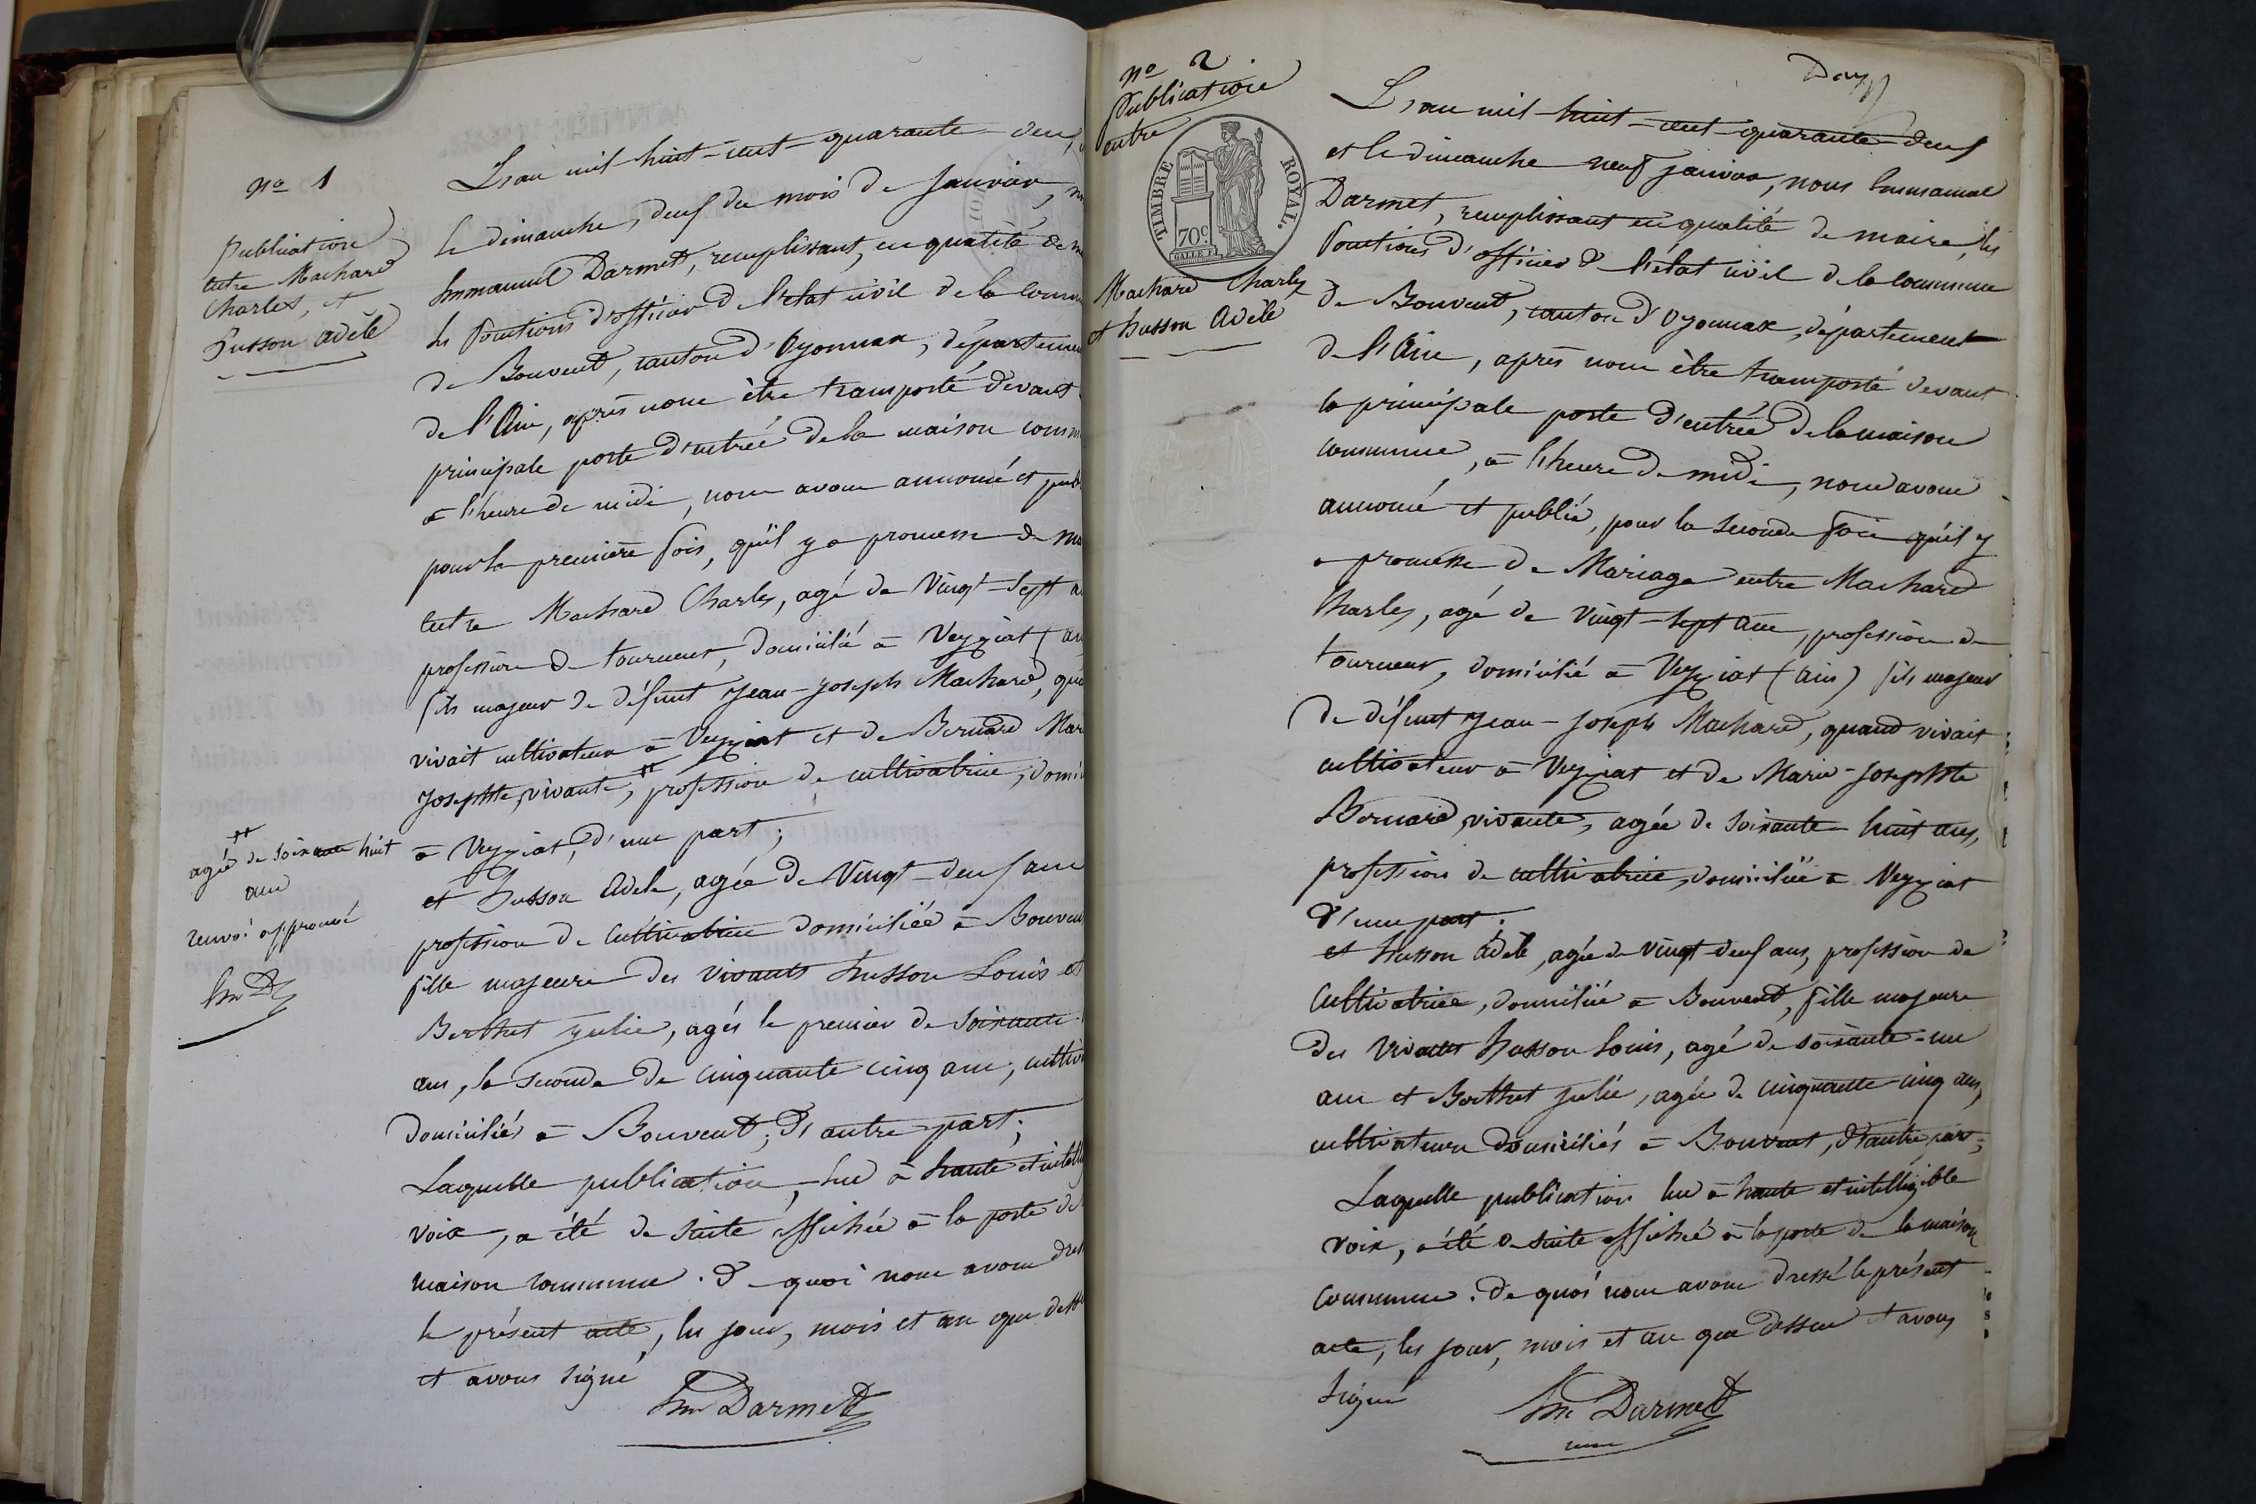 nº 1
Publication
entre Machard
Charles, et
husson adèle
L'an mil huit-cent-quarante-deux,
le dimanche, deux du mois de janvier,
Emmanuel Darmet, remplissant, en qualité de
les fonctions d'officier de l'état civil de la
de Bouvent, canton d'Oyonnax, département
de l'Ain, après nous être transporté devant
principale porte d'entrée de la maison
à l'heure de midi, nous avons annoncé et
pour la première fois, qu'il y a promesse de
entre Machard Charles, agé de Vingt-sept
profession de tourneur, domicilié à Veyziat (
fils majeur de défunt Jean-Joseph Machard,
vivait cultivateur à Veyziat et de Bernard
Josephte, vivante, profession de cultivatrice,
à Veyziat, d'une part;
et husson adele, agée de Vingt-deux ans
profession de cultivatrice domiciliée à Bouvent
fille majeure des vivants husson Louis et
Berthet julie, agés le premier de soixante
ans, la seconde de cinquante cinq ans,
domiciliés à Bouvent, d'autre part;
Laquelle publication, lue à haute et
voix, a été de suite affichée à la porte de
maison commune. De quoi nous avons
le présent acte, les jour, mois et an que
et avons signé
Em Darmet
agée de soixante huit
ans
renvoi approuvé
Em D
nº 2
Publication
entre
TIMBRE ROYAL.
70c.
Machard Charles
et husson adèle
L'an mil huit-cent-quarante-deux
et le dimanche neuf janvier, nous Emmanuel
Darmet, remplissant en qualité de maire, les
fonctions d'officier de l'état civil de la commune
de Bouvent, canton d'Oyonnax, département
de l'Ain, après nous être transporté devant
la principale porte d'entrée de la maison
commune, à l'heure de midi, nous avons
annoncé et publié, pour la seconde fois qu'il y
a promesse de Mariage entre Machard
Charles, agé de vingt-sept ans, profession de
tourneur, domicilié à Veyziat (ain) fils majeur
de défunt Jean-Joseph Machard, quand vivait
cultivateur à Veyziat et de Marie-Josephte
Bernard, vivante, agée de soixante-huit ans,
profession de cultivatrice, domiciliée à Veyziat
d'une part;
et husson adèle, agée de vingt-deux ans, profession de
cultivatrice, domiciliée à Bouvent, fille majeure
des vivants husson Louis, agé de soixante-un
ans et Berthet julie, agée de cinquante-cinq ans,
cultivateurs domiciliés à Bouvent, d'autre part;
Laquelle publication lue à haute et intelligible
voix, a été de suite affiché à la porte de la maison
commune. De quoi nous avons dressé le présent
acte, les jour, mois et an que dessus et avons
signé
Em Darmet